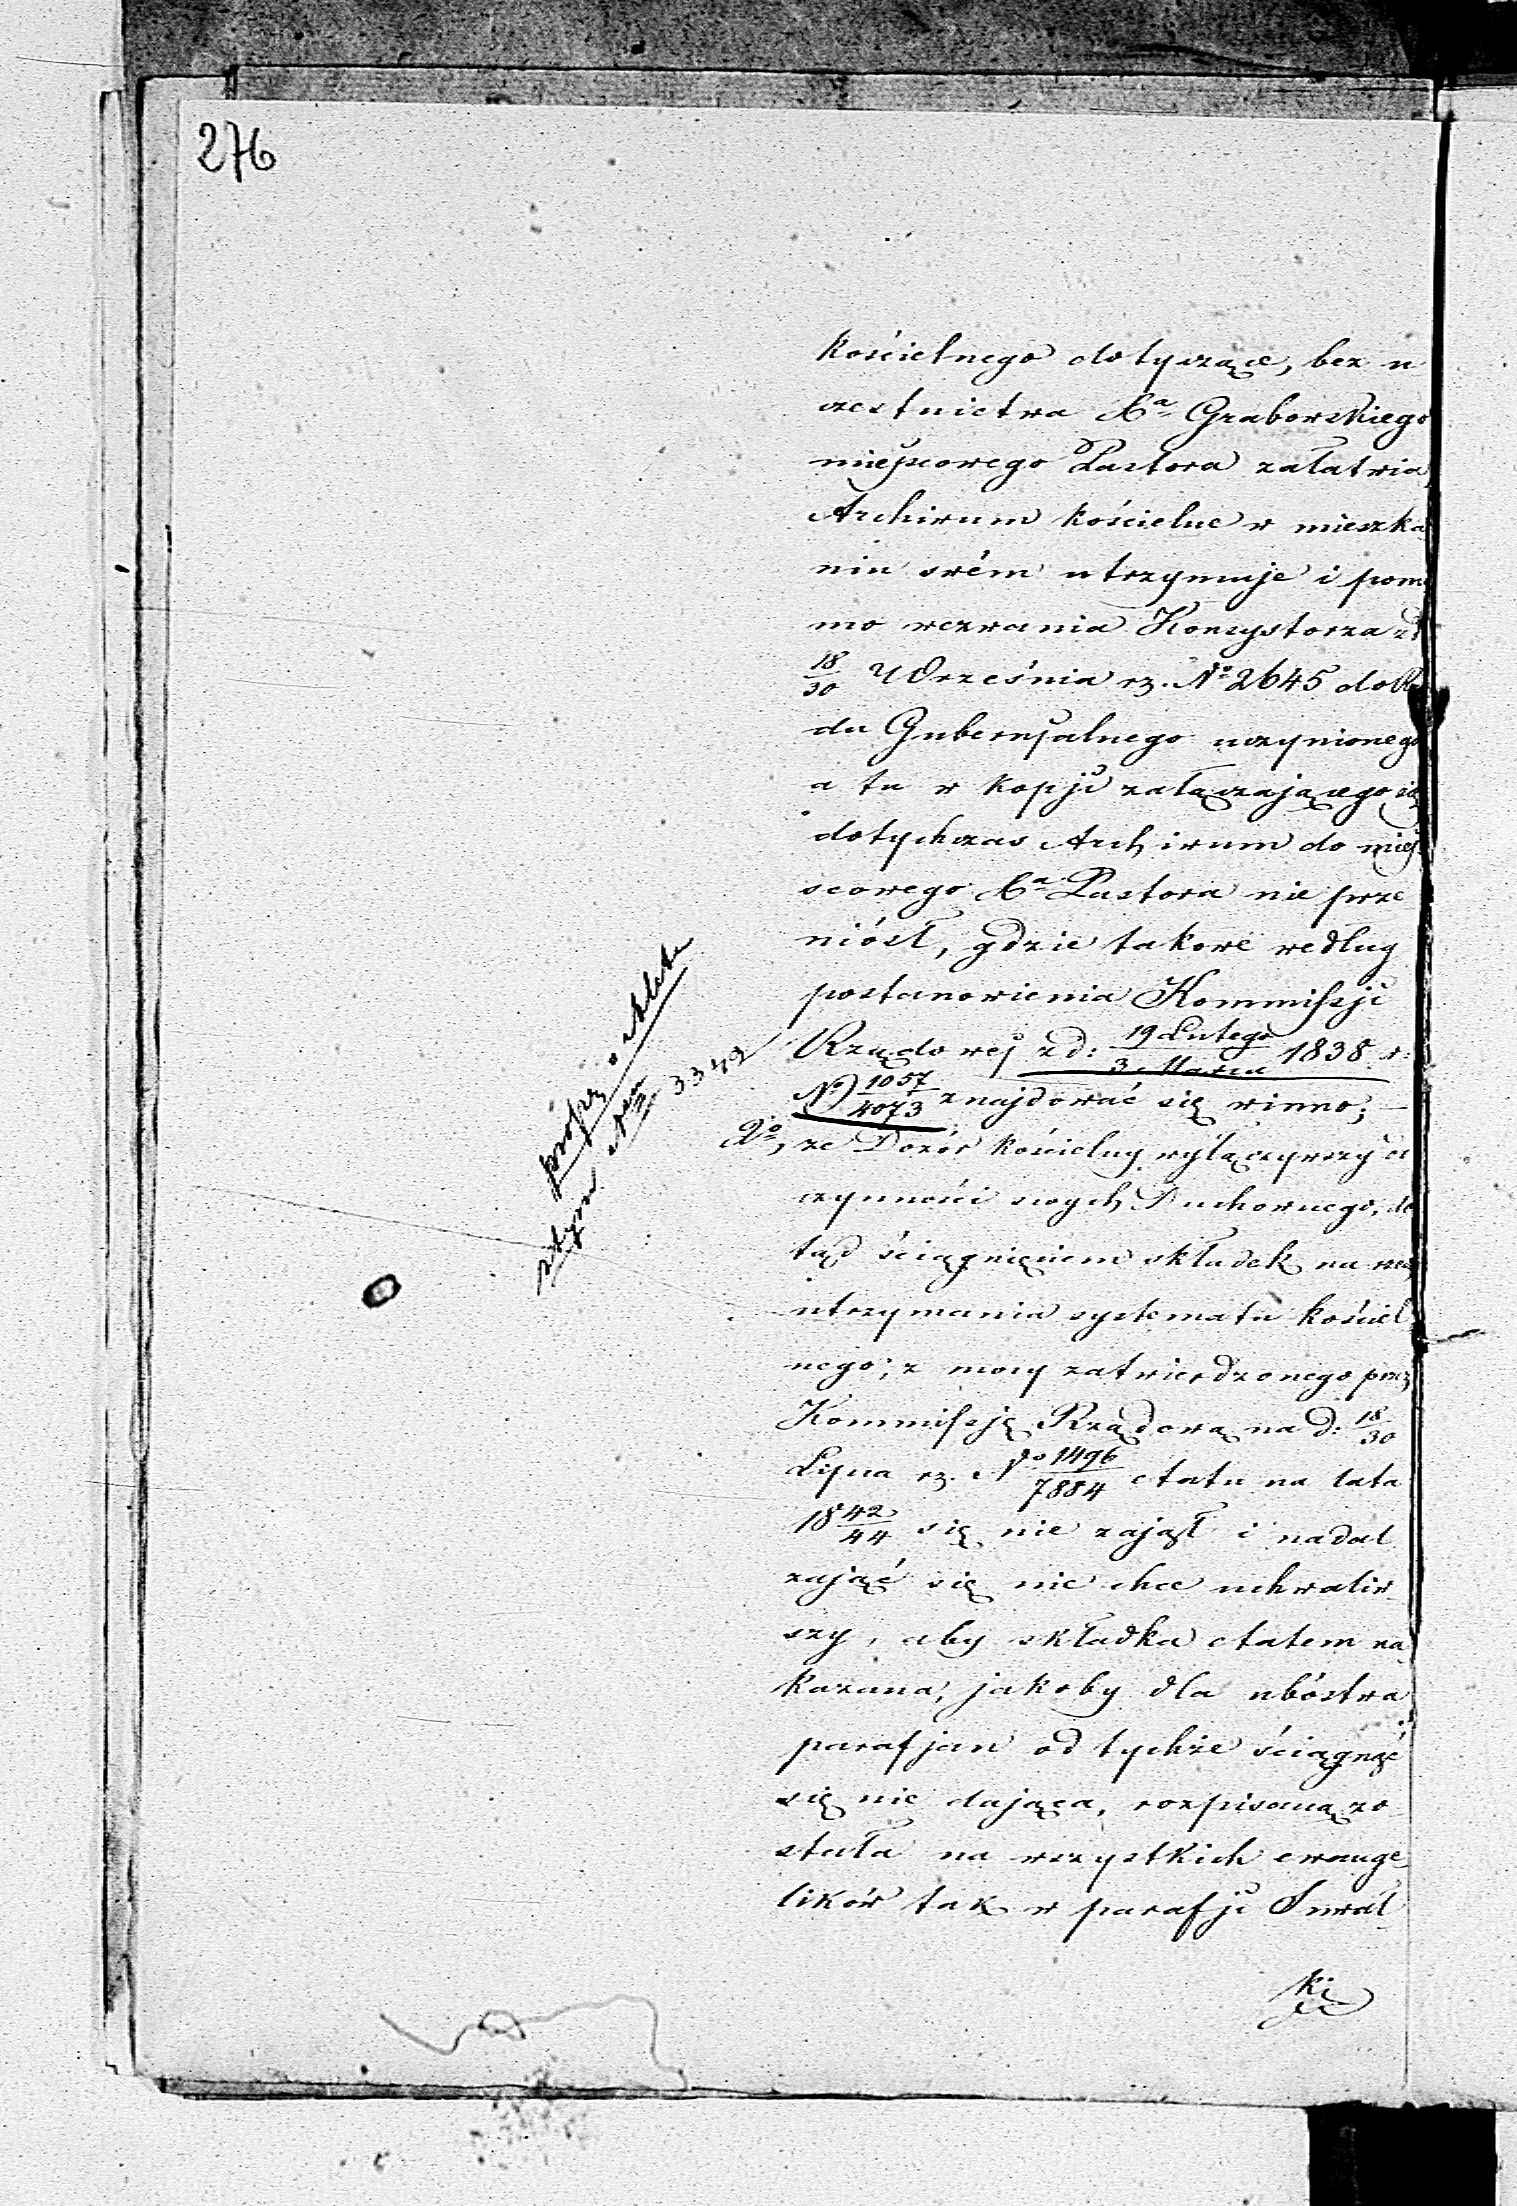 276
kościelnego dotyczące, bez u
czestnictwa Xa Grabowskiego
miejscowego Pastora załatwia
Archivum kościelne w mieszka
niu swém utrzymuje i pomi
mo wezwania Konsystorza z d
18/30 Września rz. No 2645 do Rzą
du Gubernjalnego uczynionego
a tu w kopji załączającego się
dotychczas Archivum do miej
scowego Xa Pastora nie prze
niósł, gdzie takowe według
postanowienia Kommissji
Rządowej z d: 19 Lutego/3 Marca 1838 r.
No 1057/4073 znajdować się winno; —
2o, że Dozór kościelny wyłączywszy od
czynności swych Duchownego, do
tąd ściągnięciem składek na rzecz
utrzymania systematu kościel
nego; z mocy zatwierdzonego przez
Kommissję Rządową na d: 18/30
Lipca rz. No 1496/7884 etatu na lata
18 42/44 się nie zajął i nadal
zająć się nie chce uchwaliw-
szy, aby składka etatem na
kazana, jakoby dla ubóstwa
parafjan od tychże ściągnąć
się nie dająca, rozpisaną zo
stała na wszystkich ewange
lików tak w parafji Suwał
ki
przy
3342